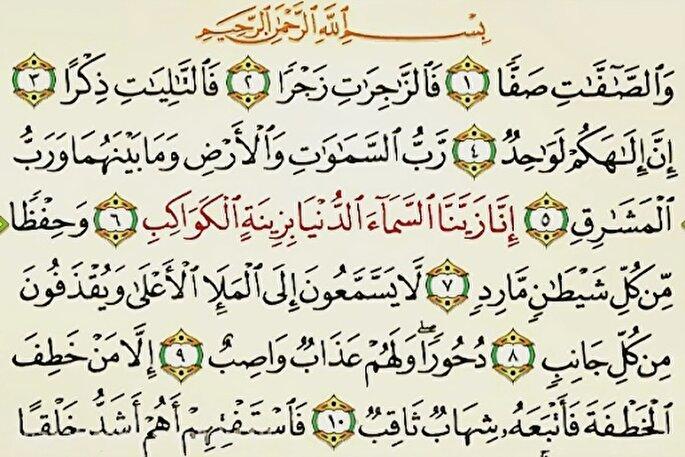 بِسْمِ اللَّهِ الرَّحْمَٰنِ الرَّحِيمِ
وَالصَّافَّاتِ صَفًّا ١ فَالزَّاجِرَاتِ زَجْرًا ٢ فَالتَّالِيَاتِ ذِكْرًا ٣
إِنَّ إِلَٰهَكُمْ لَوَاحِدٌ ٤ رَّبُّ السَّمَاوَاتِ وَالْأَرْضِ وَمَا بَيْنَهُمَا وَرَبُّ
الْمَشَارِقِ ٥ إِنَّا زَيَّنَّا السَّمَاءَ الدُّنْيَا بِزِينَةٍ الْكَوَاكِبِ ٦ وَحِفْظًا
مِّن كُلِّ شَيْطَانٍ مَّارِدٍ ٧ لَّا يَسَّمَّعُونَ إِلَى الْمَلَإِ الْأَعْلَىٰ وَيُقْذَفُونَ
مِن كُلِّ جَانِبٍ ٨ دُحُورًا ۖ وَلَهُمْ عَذَابٌ وَاصِبٌ ٩ إِلَّا مَنْ خَطِفَ
الْخَطْفَةَ فَأَتْبَعَهُ شِهَابٌ ثَاقِبٌ ١٠ فَاسْتَفْتِهِمْ أَهُمْ أَشَدُّ خَلْقًا